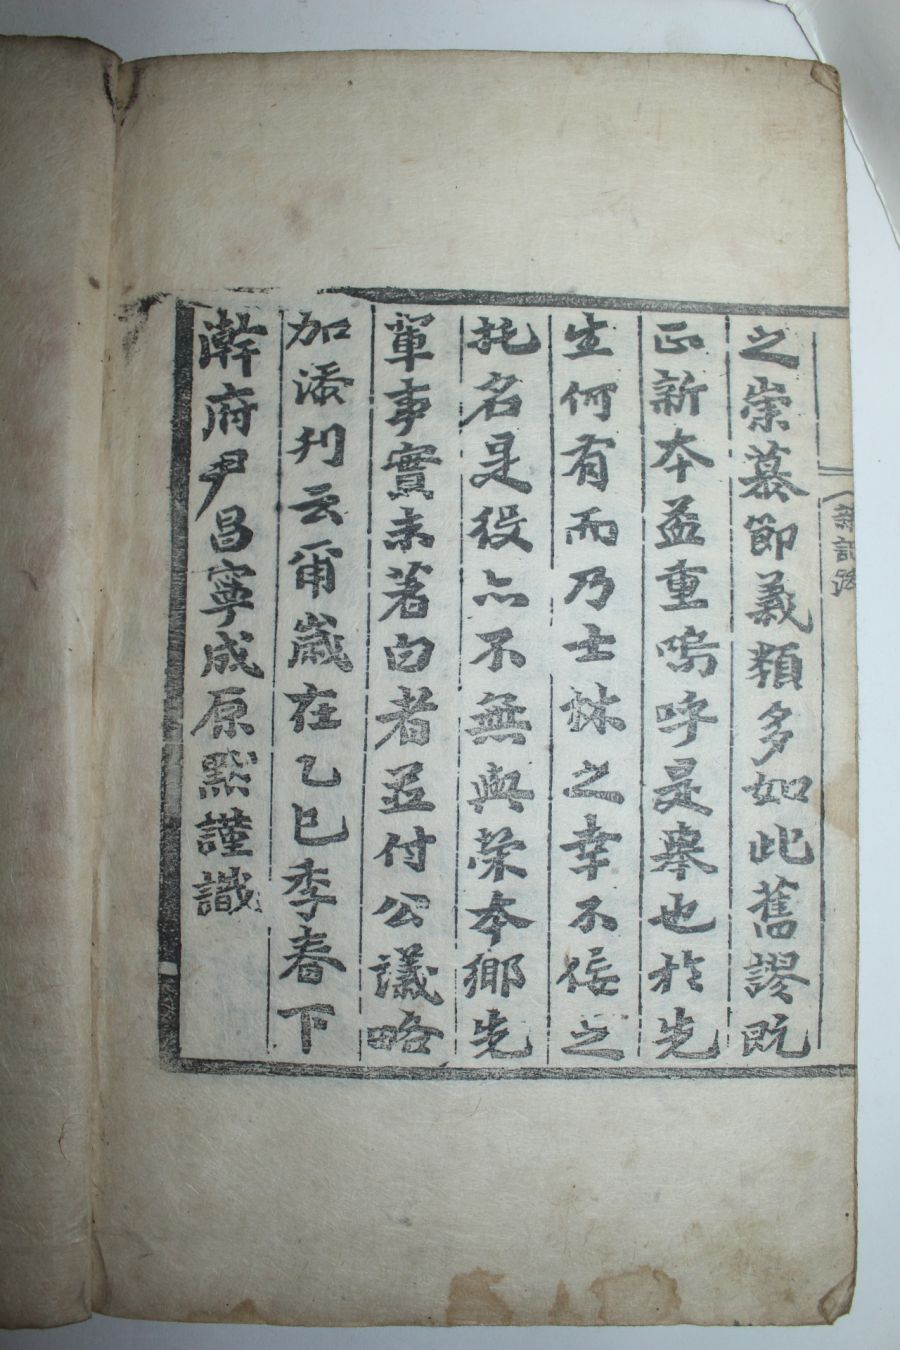 之崇慕節義類多如此舊謬既
正新本益重嗚呼是舉也於先
生何有而乃士林之幸不佞之
托名是役亦不無與榮本鄉先
輩事實未著白者並付公議略
加添刊云爾歲在乙巳季春下
澣府尹昌寧成原默謹識